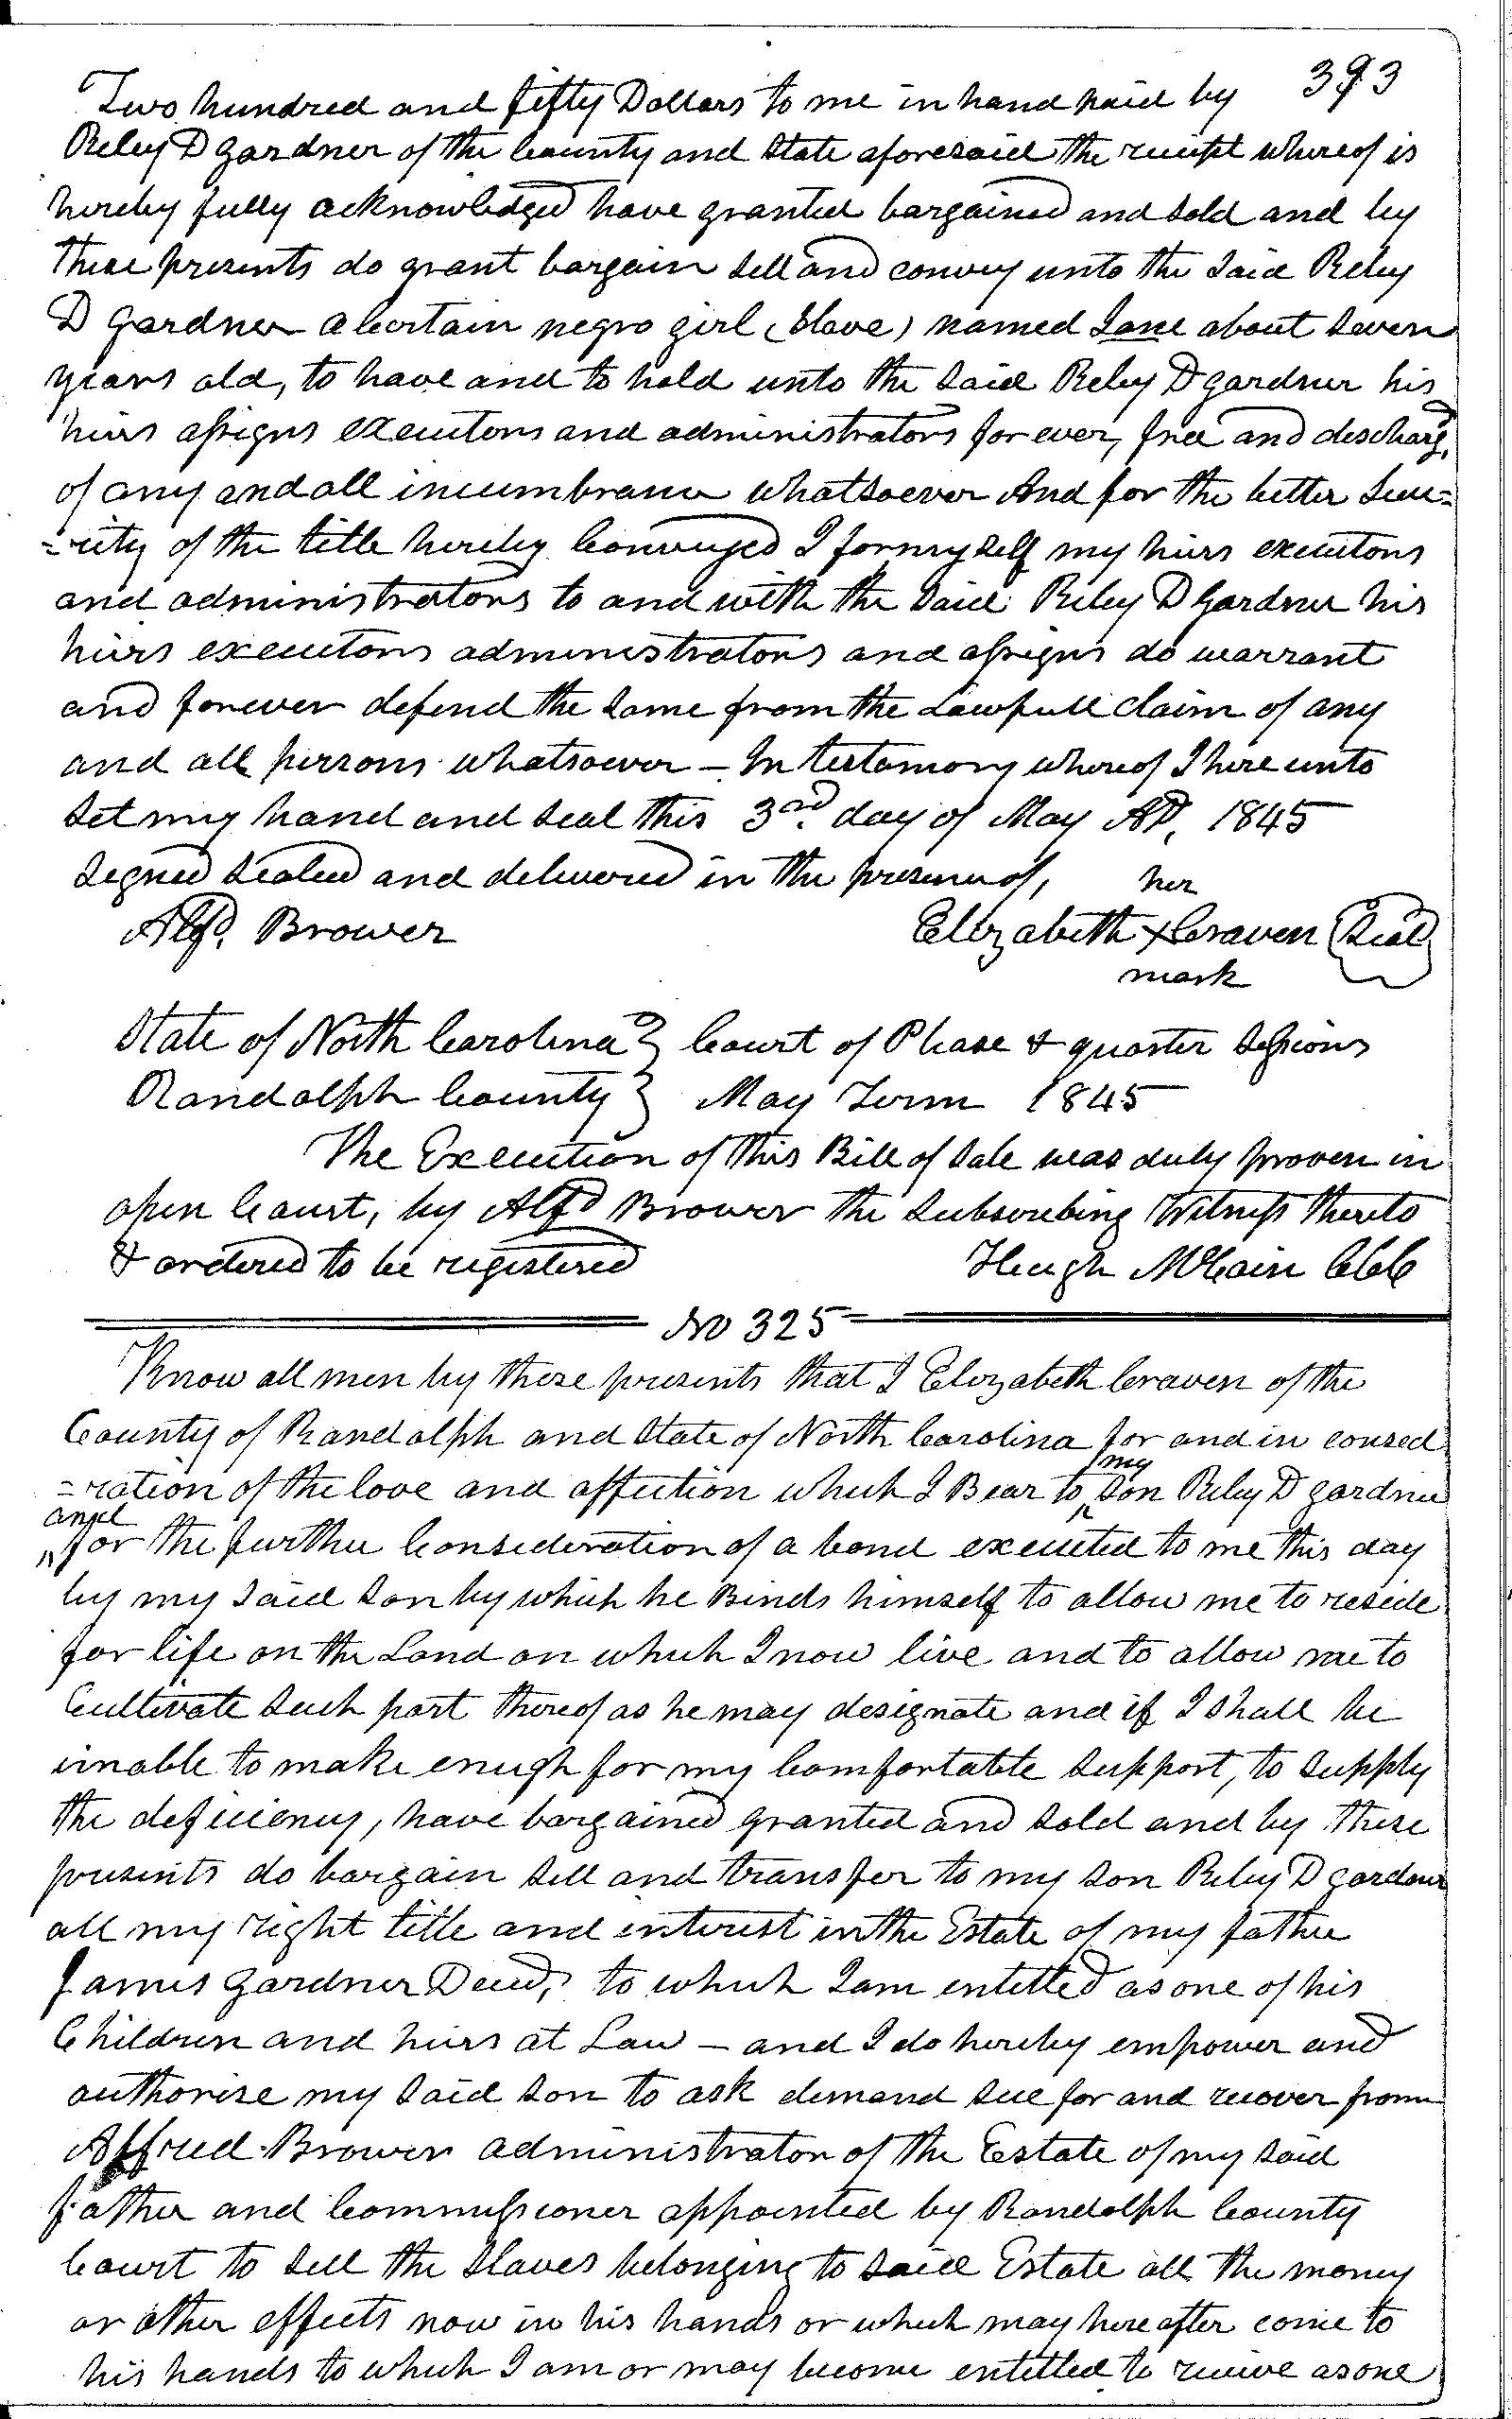 393
Two hundred and fifty Dollars to me in hand paid by
Reley D Gardner of the County and State aforesaid the receipt whereof is
hereby fully acknowledged have granted bargained and sold and by
these presents do grant bargain sell and convey unto the said Reley
D Gardner a certain negro girl (Slave) named Jane about seven
years old, to have and to hold unto the said Reley D Gardner his
heirs assigns executors and administrators for ever, free and discharg'd
of any and all incumbrance whatsoever And for the better secu=
=rity of the title hereby Conveyed I for myself my heirs executors
and administrators to and with the said Riley D Gardner his
heirs executors administrators and assigns do warrant
and forever defend the same from the Lawfull claim of any
and all persons whatsoever – In testamony whereof I here unto
set my hand and seal this 3rd day of May AD, 1845
Signed sealed and delivered in the presence of, her
Alfd. Brower Elizabeth x Craven (Seal)
mark
State of North Carolina } Court of Please & quarter Sessions
Randolph County } May Term 1845
The Execution of this Bill of Sale was duly proven in
open Court, by Alfd Brower the Subscribing Witness thereto
& ordered to be registered Hugh McCain CCC
No 325
Know all men by these presents that I Elizabeth Craven of the
County of Randolph and State of North Carolina for and in consed
=ration of the love and affection which I Bear to my son Riley D Gardner
and for the further Consideration of a bond executed to me this day
by my said son by which he Binds himself to allow me to reside
for life on the Land on which I now live and to allow me to
Cultivate such part thereof as he may designate and if I shall be
unable to make enugh for my Comfortable support, to supply
the deficiency, have bargained granted and sold and by these
presents do bargain sell and transfer to my son Riley D Gardner
all my right title and interest in the Estate of my father
James Gardner Decd, to which I am entitled as one of his
Children and heirs at Law – and I do hereby empower and
authorise my said son to ask demand sue for and recover from
Alfred Brower administrator of the Estate of my said
father and Commissioner appointed by Randolph County
Court to sell the slaves belonging to said Estate all the money
or other effects now in his hands or which may here after come to
his hands to which I am or may become entitled to receive as one